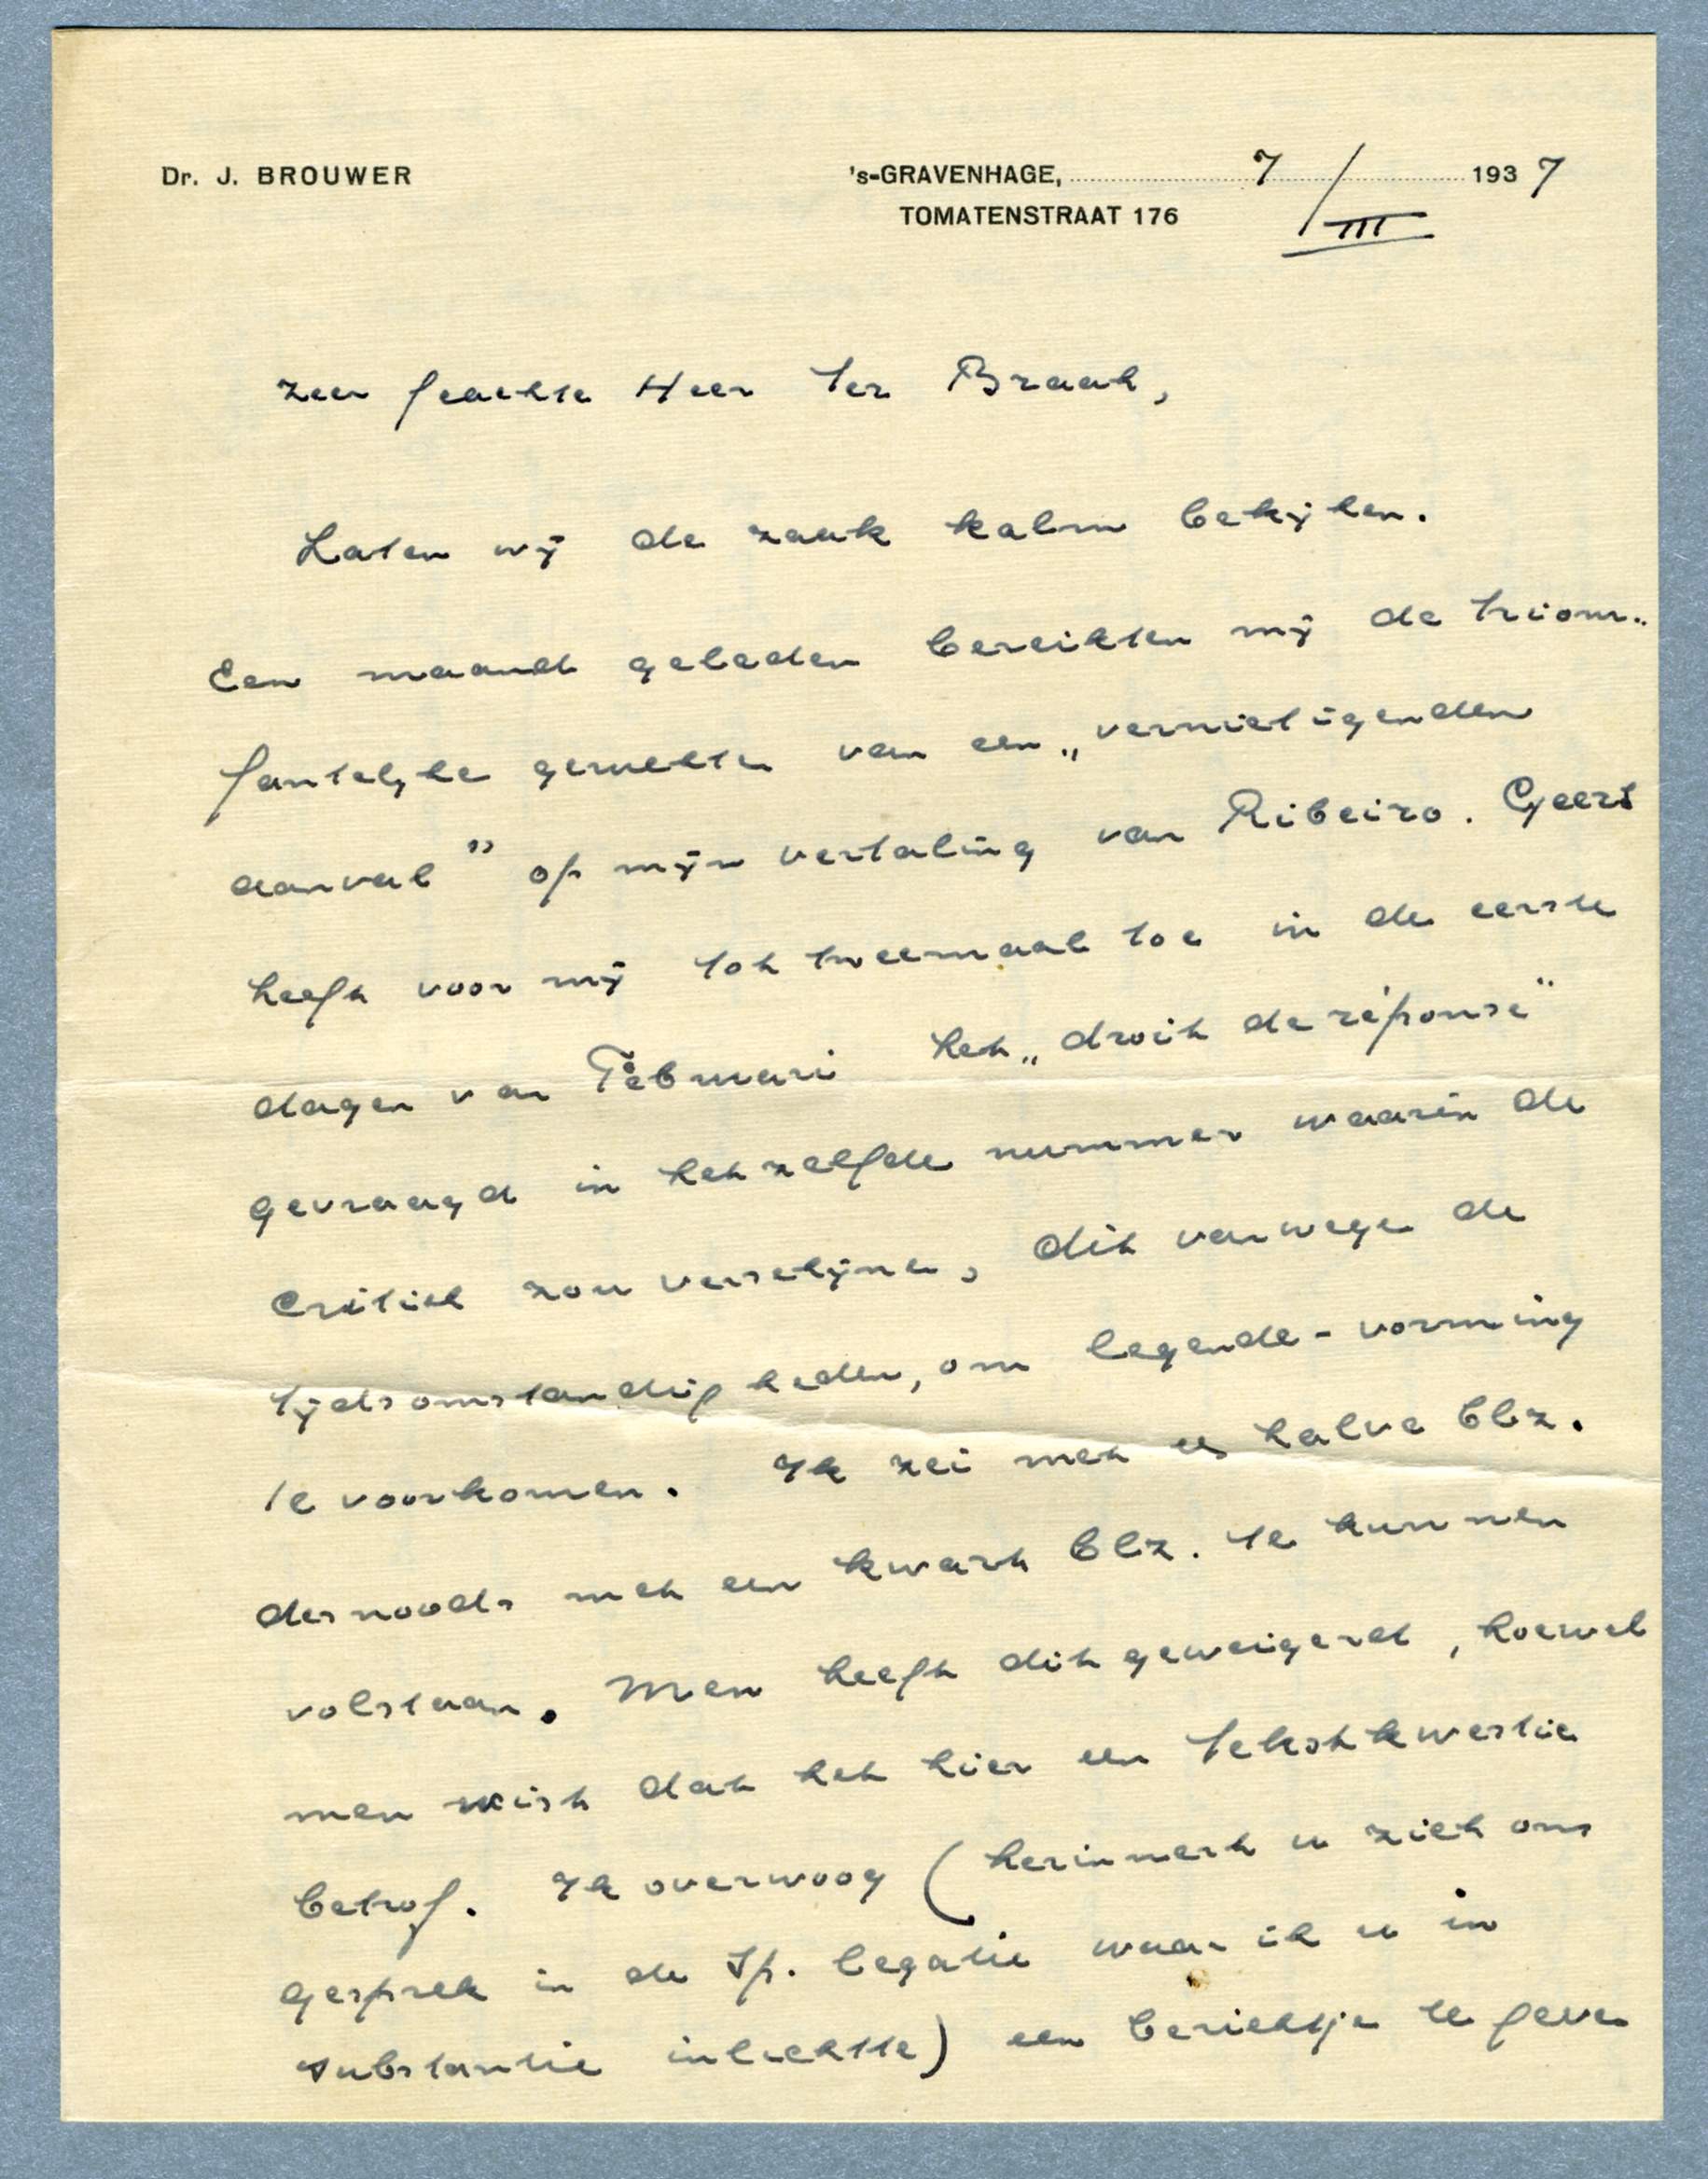 Dr. J. BROUWER
's-GRAVENHAGE, 7/III 1937
TOMATENSTRAAT 176
Zeer geachte Heer Ter Braak,
Laten wij de zaak kalm bekijken.
Een maand geleden bereikten mij de triom-
fantelijke geruchten van een „vernietigenden
aanval" op mijn vertaling van Ribeiro. Geers
heeft voor mij tot tweemaal toe in de eerste
dagen van Februari het „droit de réponse"
gevraagd in hetzelfde nummer waarin de
critiek zou verschijnen, dit vanwege de
tijdsomstandigheden, om legende-vorming
te voorkomen. Ik zei met een halve blz.
desnoods met een kwart blz. te kunnen
volstaan. Men heeft dit geweigerd, hoewel
men wist dat het hier een tekstkwestie
betrof. Ik overwoog (herinnert u zich ons
gesprek in de Sp. legatie waar ik u in
substantie inlichtte) een berichtje te geven